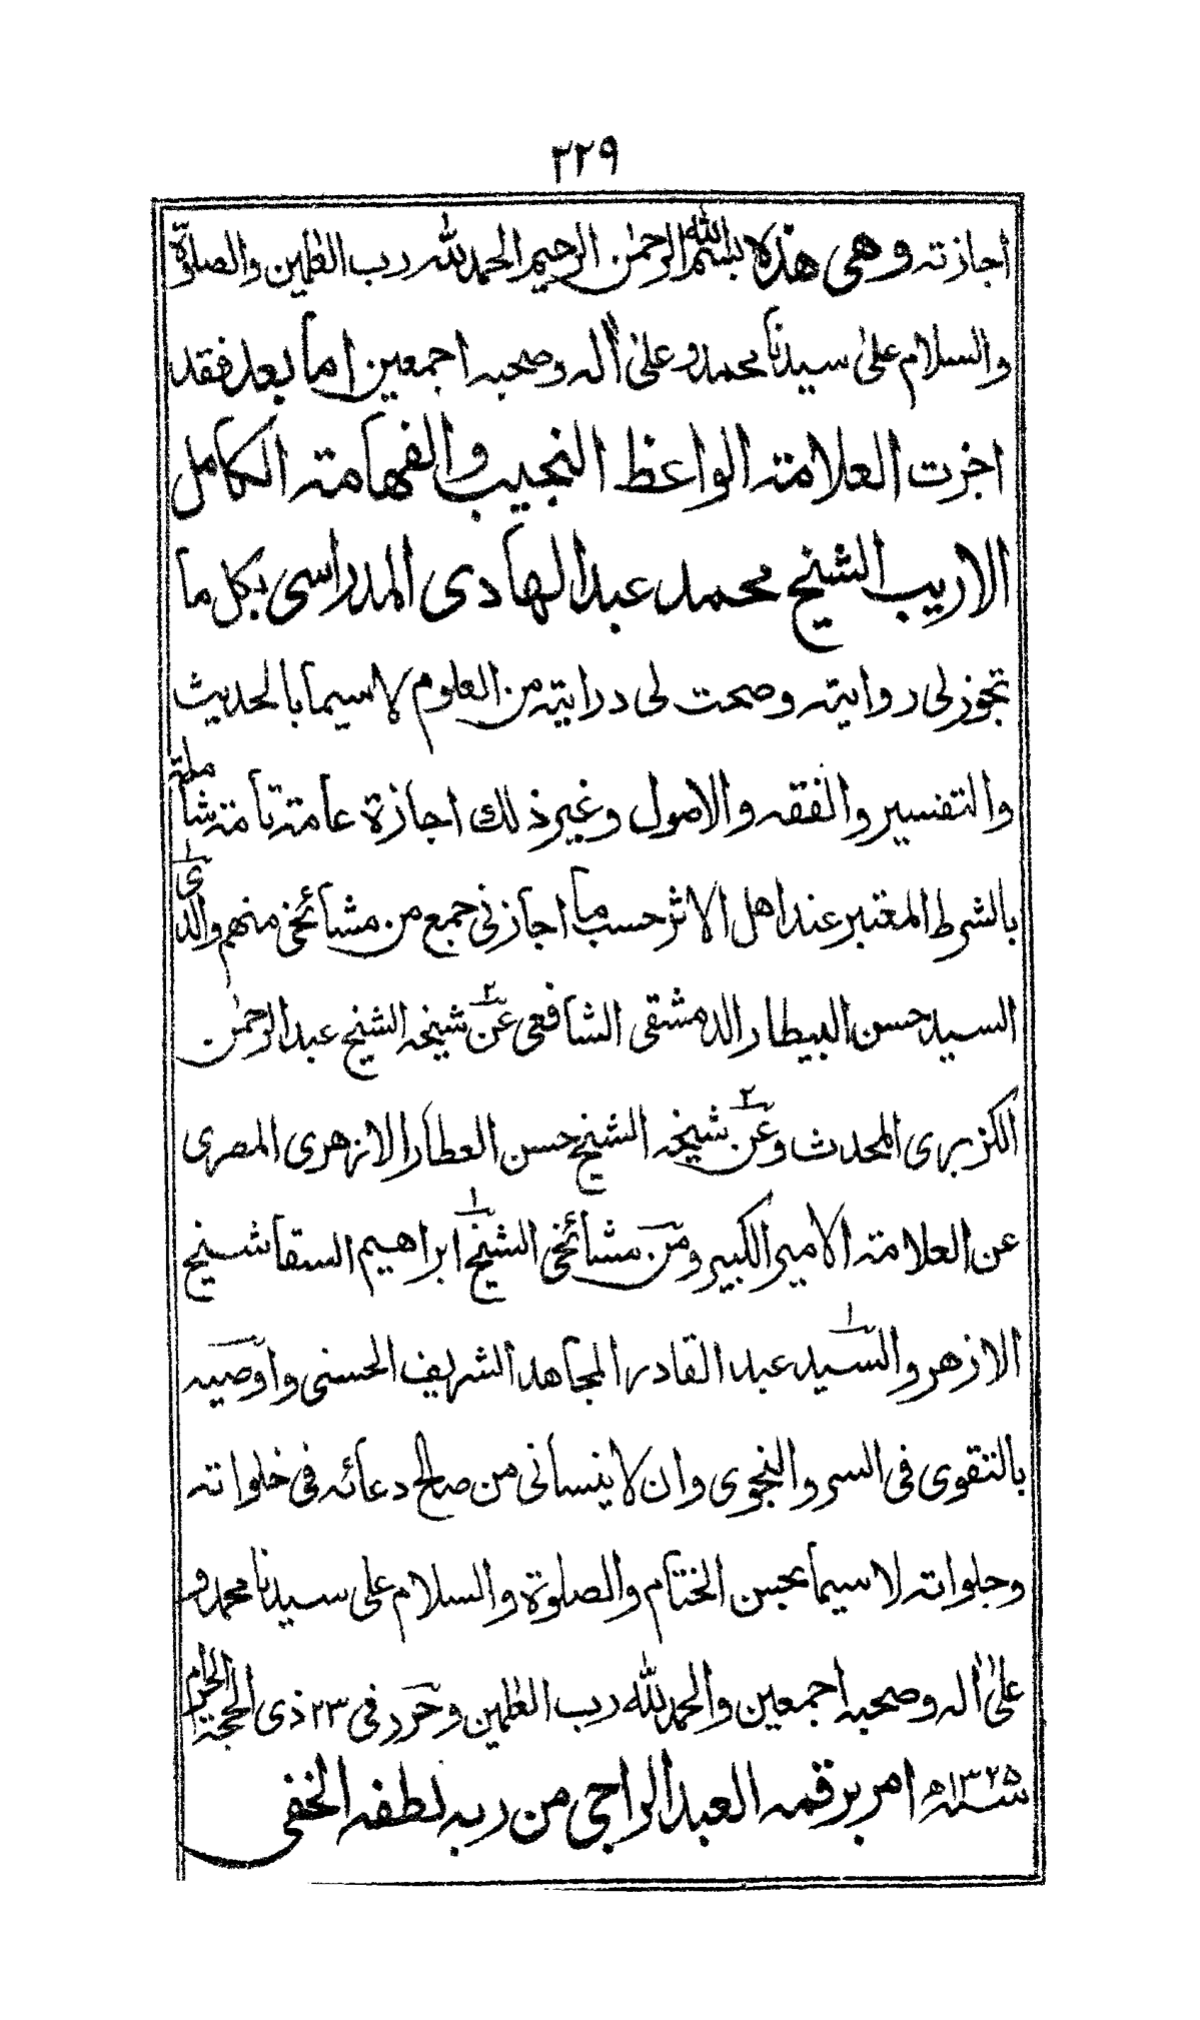 ٣٢٩
أجازته وهى هذه بسم الله الرحمٰن الرحيم الحمد لله رب العٰلمين والصلوٰة
والسلام علىٰ سيدنا محمد وعلىٰ اٰله وصحبه اجمعين اما بعد فقد
اجزت العلامة الواعظ النجيب والفهامة الكامل
الاريب الشيخ محمد عبد الهادى المدراسى بكل ما
تجوز لى روايته وصحت لى درايته من العلوم لا سيما بالحديث
والتفسير والفقه والاصول وغير ذلك اجازة عامة تامة شاملة
بالشرط المعتبر عند اهل الاثر حسب ما اجازنى جمع من مشائخى منهم والدى ١
السيد حسن البيطار الدمشقى الشافعى عن ٢ شيخه الشيخ عبد الرحمٰن
الكزبرى المحدث وعن ٢ شيخه الشيخ حسن العطار الازهرى المصرى
عن العلامة الامير الكبير ومن مشائخى الشيخ ١ ابراهيم السقا شيخ
الازهر والسيد ١ عبد القادر المجاهد الشريف الحسنى واوصيه
بالتقوى فى السر والنجوى وان لا ينسانى من صالح دعائه فى خلواته
وجلواته لا سيما بحسن الختام والصلوة والسلام على سيدنا محمد و
علىٰ اٰله وصحبه اجمعين والحمد لله رب العٰلمين وحرر فى ٢٣ ذى الحجة الحرام
سنة ١٣٢٥ھ امر برقمه العبد الراجى من ربه لطفه الخفى